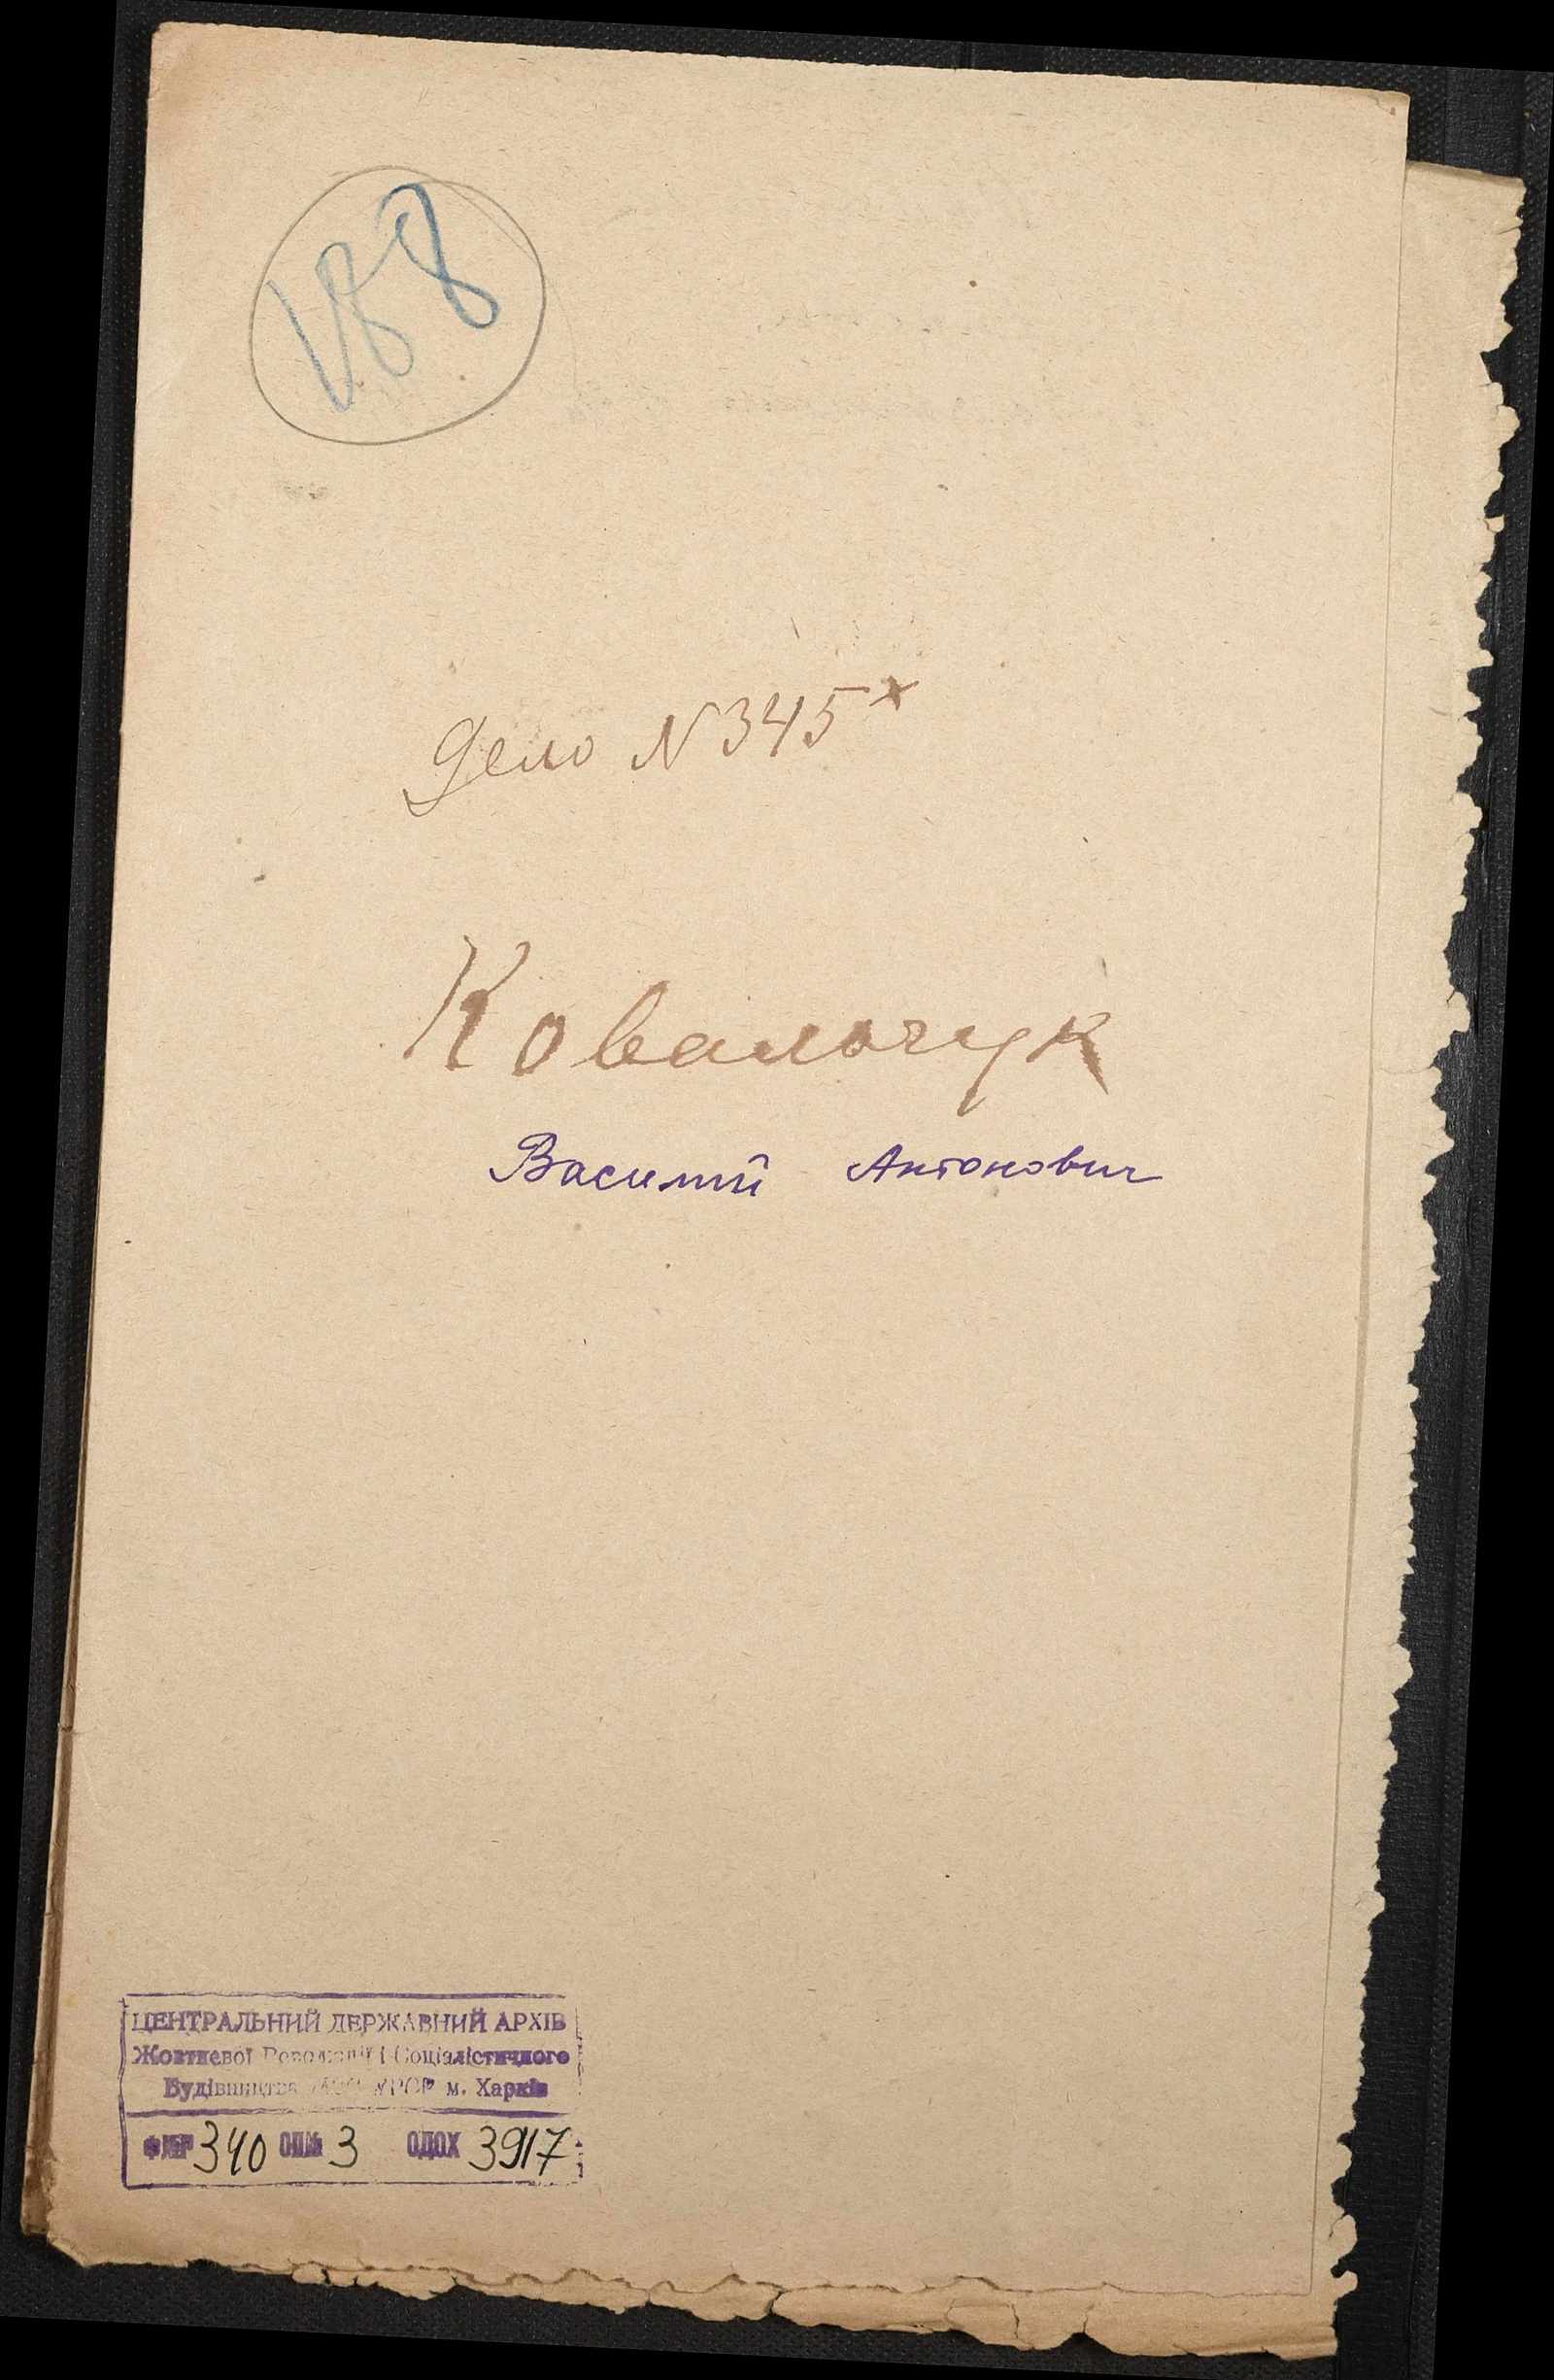 188
Дело N 345 x
Ковальчук
Василий Антонович
ЦЕНТРАЛЬНИЙ ДЕРЖАВНИЙ АРХІВ
Жовтневої Революції і Соціалістичного
Будівництва УРСР м. Харків
Ф №Р 340 ОП№ 3 ОД0Х 3917